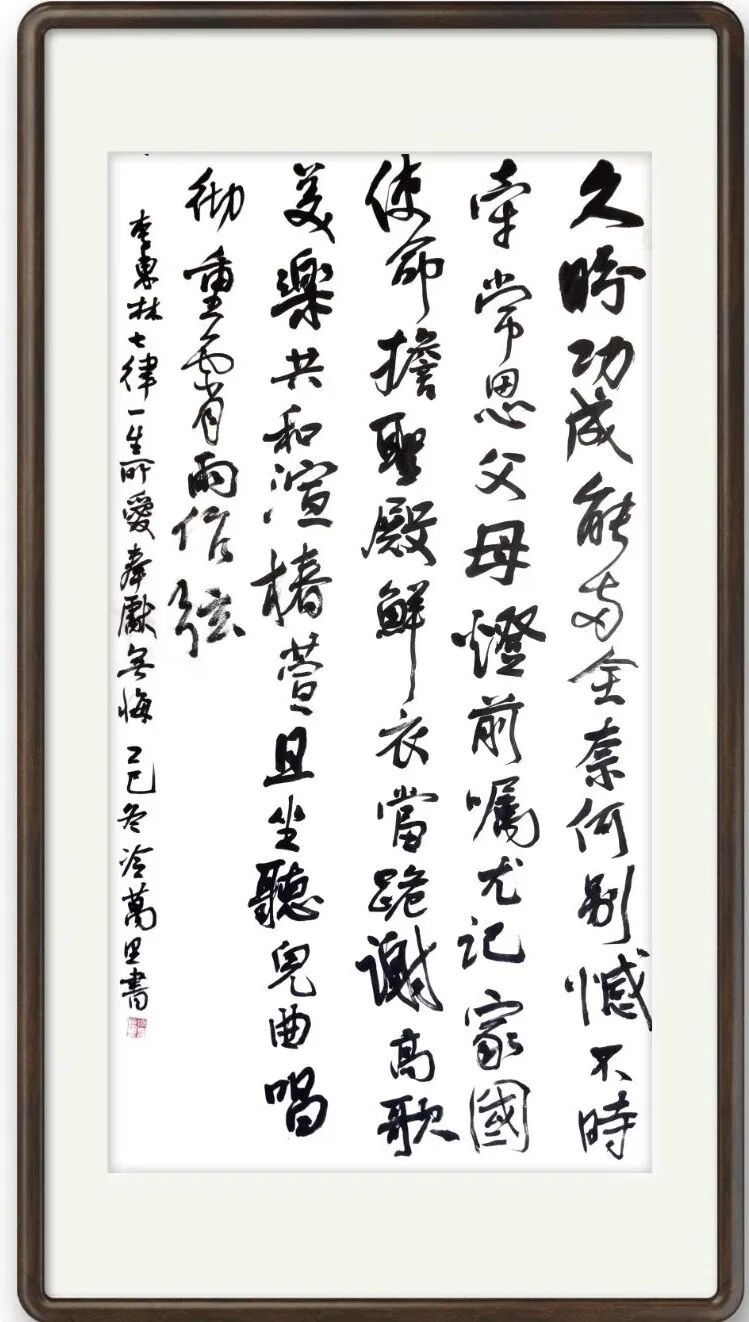 久盼功成能两全奈何别憾不時
牵常思父母燈前囑尤记家國
使命擔聖殿鮮衣當跪謝高歌
美樂共和渲椿萱且坐聽兒曲唱
彻重霄雨作弦
李東林七律一生所愛奉獻無悔 乙巳冬冷萬里書